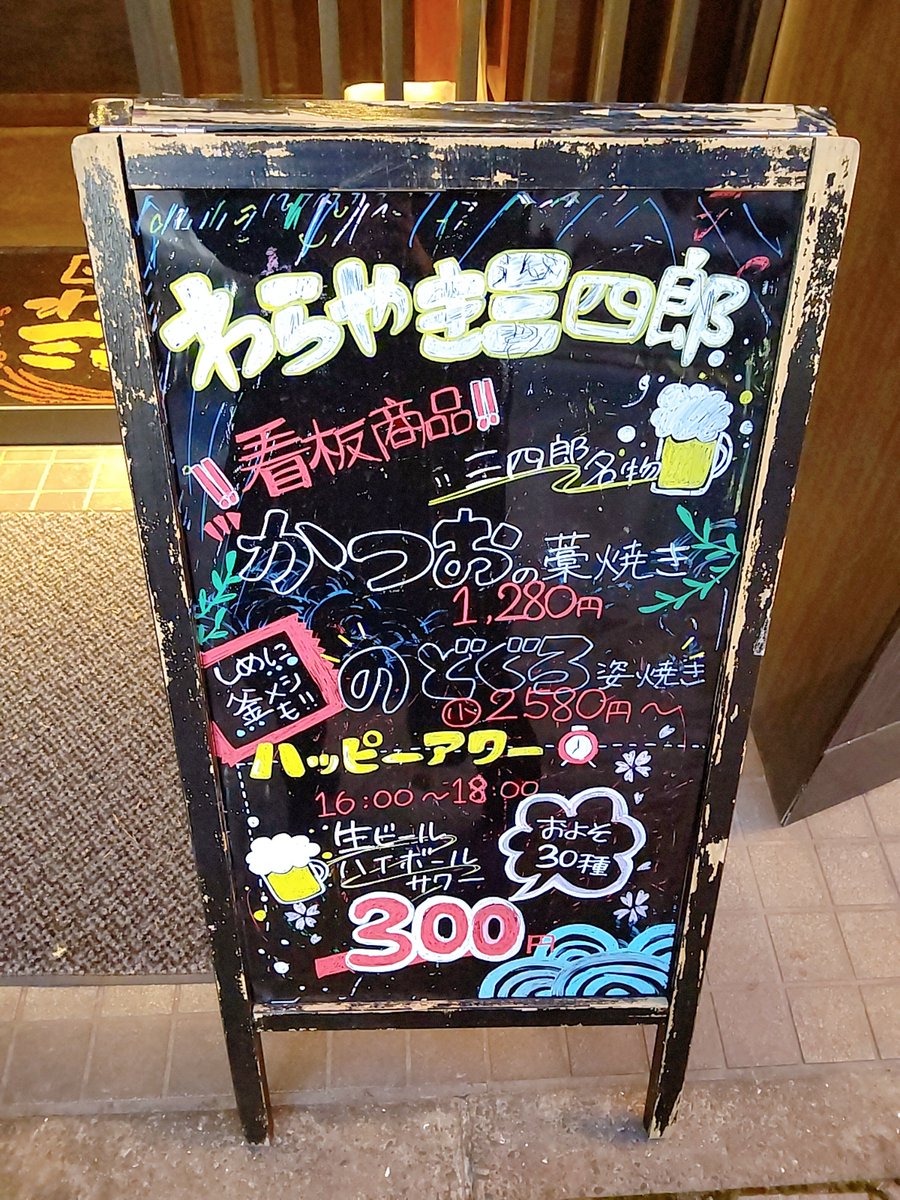 わらやき三四郎
!!看板商品!!
三四郎名物
かつおの藁焼き
1,280円
しめに
釜メシ
も!!!
のどぐろ姿焼き
小2580円〜
ハッピーアワー
16:00〜18:00
生ビール
ハイボール
サワー
およそ
30種
300円